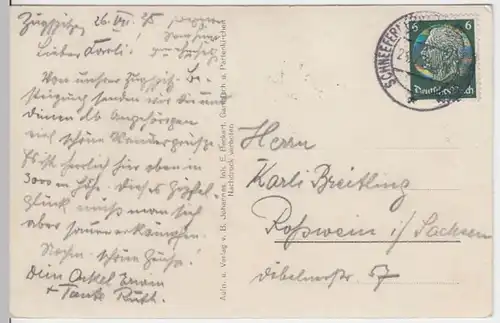 Zugspitze, 26. VII. 35
Lieber Karli!
Von unserer Zugspitz-Be-
steigung senden wir Dir und
Deinen lb Angehörigen
viel schöne Wandergrüße
Es ist herrlich hier oben in
3000 m Höhe. Dieses Gipfel-
glück muß man sich
aber sauer erkämpfen.
Nochm. schöne Grüße!
Dein Onkel Erwin
+ Tante Ruth.
Aufn. u. Verlag v. B. Johannes, Inh. E. Garmisch u. Partenkirchen
Nachdruck verboten.
SCHNEEFERN
6 6
Deutsches Reich
Herrn
Karli Breitling
Roßwein i/ Sachsen
Döbelnerstr. 7